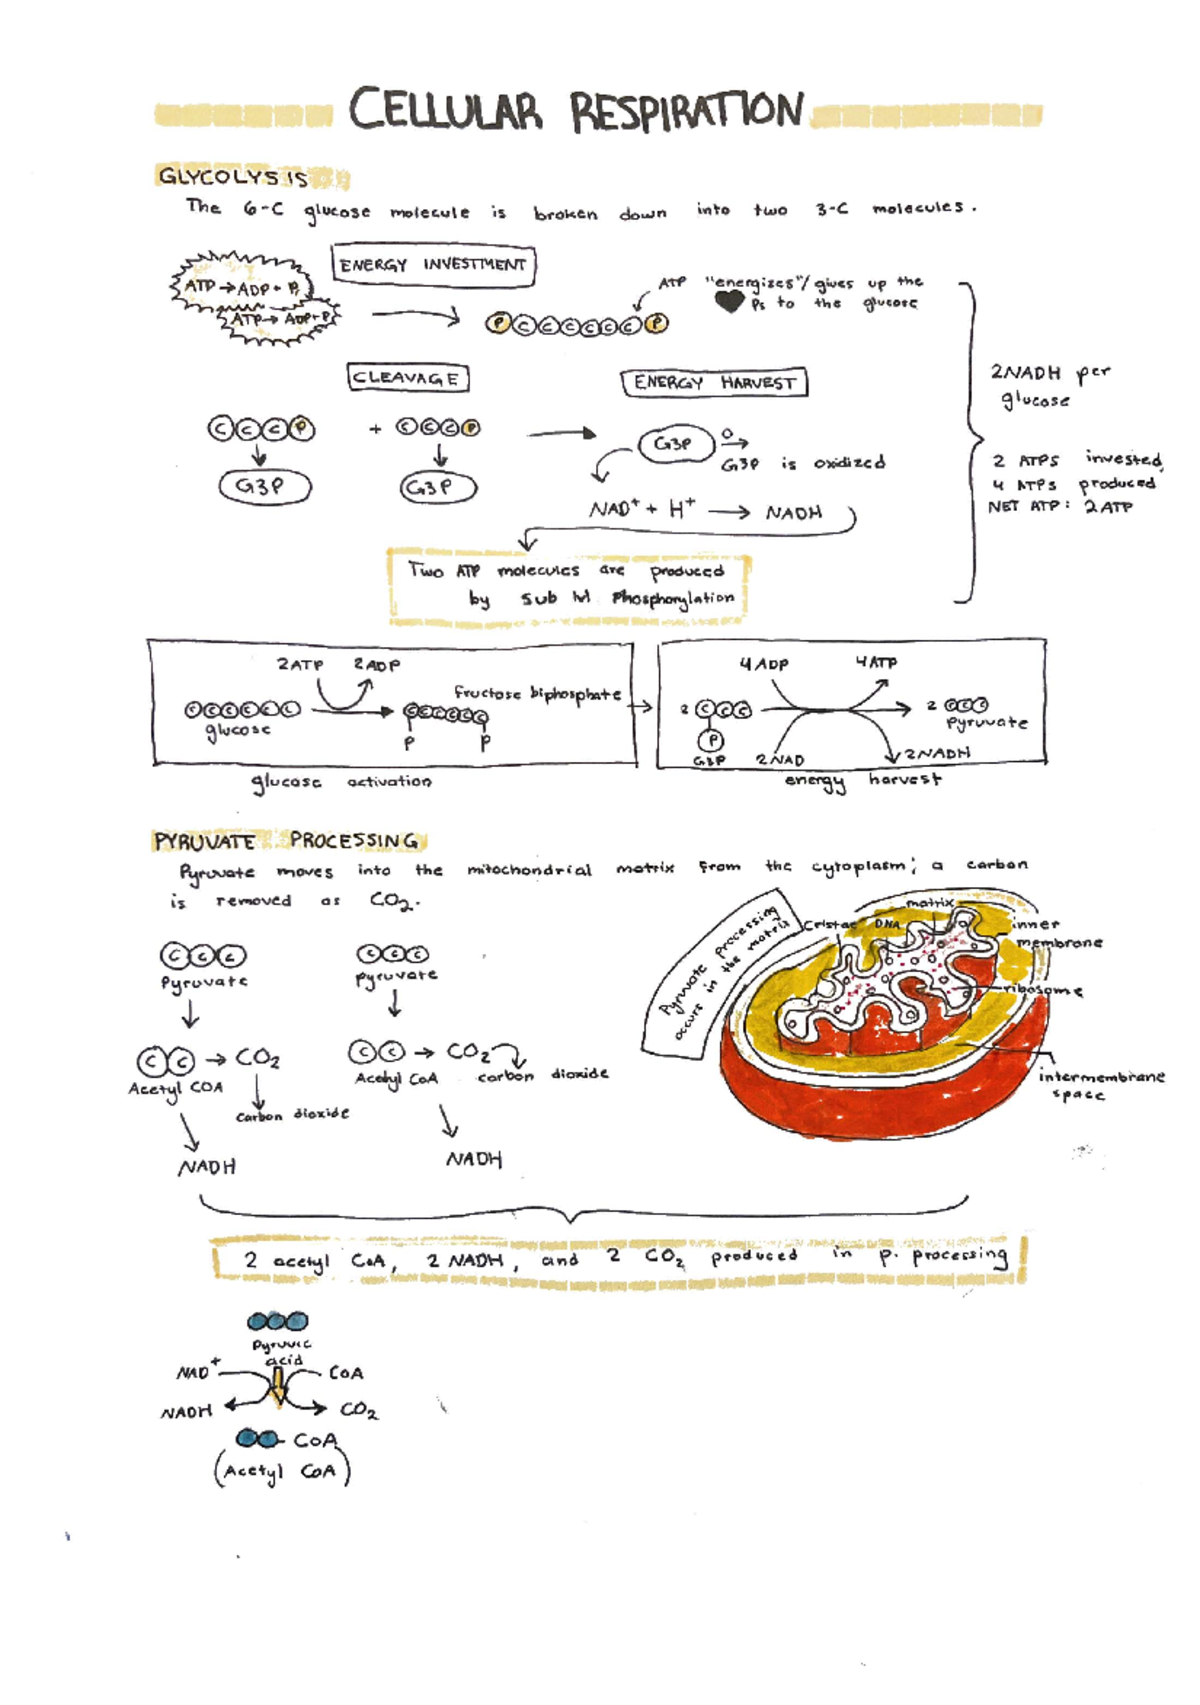 CELLULAR RESPIRATION
GLYCOLYSIS
The 6-C glucose molecule is broken down into two 3-C molecules.
ENERGY INVESTMENT
ATP → ADP + P
ATP → ADP + P
P C C C C C C P
ATP "energizes"/gives up the
Ps to the glucose
CLEAVAGE
ENERGY HARVEST
C C C P + C C C P
G3P
G3P
G3P
G3P is oxidized
NAD+ + H+ → NADH
2NADH per
glucose
2 ATPS invested,
4 ATPs produced
NET ATP: 2ATP
Two ATP molecules are produced
by sub lvl phosphorylation
2ATP 2ADP
C C C C C C
glucose
C C C C C C
P P
fructose biphosphate
glucose activation
4ADP 4ATP
2 C C C
P
G3P
2NAD
2NADH
2 C C C
pyruvate
energy harvest
PYRUVATE PROCESSING
Pyruvate moves into the mitochondrial matrix from the cytoplasm; a carbon
is removed as CO2.
C C C
Pyruvate
C C C
pyruvate
C C → CO2
Acetyl COA
carbon dioxide
NADH
C C → CO2
Acetyl CoA
carbon dioxide
NADH
Pyruvate processing
occurs in the matrix
Cristae
DNA
matrix
inner
membrane
ribosome
intermembrane
space
2 acetyl CoA, 2 NADH, and 2 CO2 produced in p. processing
pyruvic
acid
NAD+
CoA
NADH
CO2
CoA
(Acetyl CoA)